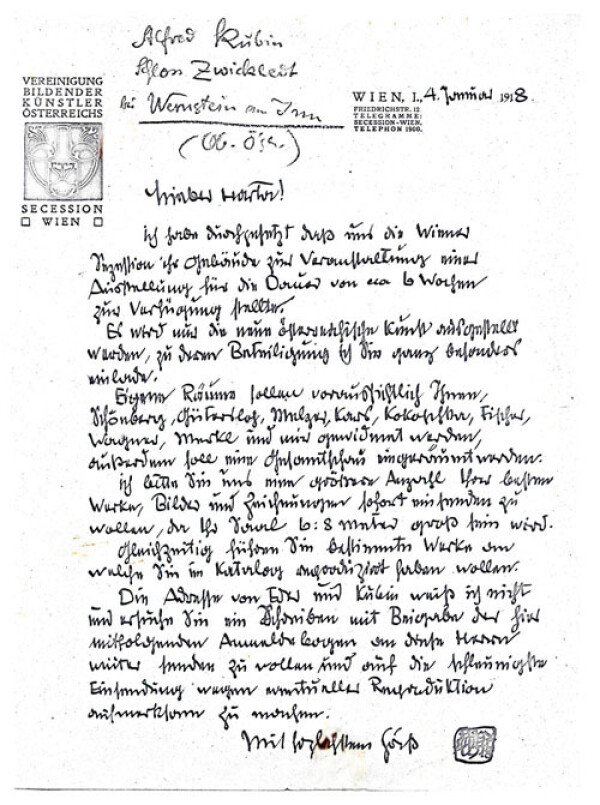 Alfred Kubin
Schloss Zwickledt
bei Wernstein am Inn
(Ob. Öst.)
VEREINIGUNG
BILDENDER
KÜNSTLER
ÖSTERREICHS
SECESSION
WIEN
WIEN, I., 4. Januar 1918.
FRIEDRICHSTR. 12
TELEGRAMME:
SECESSION-WIEN.
TELEPHON 1900.
Lieber
ich habe durchgesetzt daß uns die Wiener
Sezession ihr Gebäude zur Veranstaltung einer
Ausstellung für die Dauer von ca 6 Wochen
zur Verfügung stellte.
Es wird nur die neue österreichische Kunst ausgestellt
werden, zu deren Beteiligung ich Sie ganz besonders
einlade.
Eigene Räume sollen voraussichtlich Ihnen,
Schönberg, Gütersloh, Melzer, Kars, Kokoschka, Fischer,
Wagner, Merkl und mir gewidmet werden,
außerdem soll eine Gesamtschau eingeräumt werden.
ich bitte Sie uns eine größere Anzahl Ihrer besten
Werke, Bilder und Zeichnungen sofort einsenden zu
wollen, da Ihr Saal 6:8 Meter groß sein wird.
Gleichzeitig führen Sie bestimmte Werke an
welche Sie im Katalog reproduziert haben wollen.
Die Adresse von und Kubin weiß ich nicht
und ersuche Sie ein Schreiben mit Beigabe der hier
mitfolgenden Anmeldebogen an diese Herren
weiter senden zu wollen und auf die schleunigste
Einsendung wegen eventueller Reproduktion
aufmerksam zu machen.
Mit herzlichstem Gruß